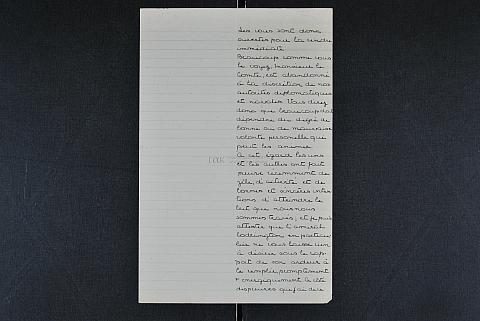 Les vous sont donc
ouvertes pour la rendre
immédiate.
Beaucoup comme vous
le voyez, Monsieur le
Comte, est abandonné
à la discrétion de nos
autorités diplomatiques
et navales. Vous direz
donc que beaucoup doit
dépendre du degré de
bonne ou de mauvaise
volonté personnelle qui
peut les animer.
A cet égard les uns
et les autres ont fait
preuve récemment de
zèle, d'activité et de
bonnes et sincères inten
tions d'atteindre le
but que nous nous
sommes tracés, et je puis
attester que l'amiral
Codrington en particu
lier ne vous laisse rien
à désirer sous le rap-
port de son ardeur à
le remplir promptement
+ énergiquement. à côté
que j'ai